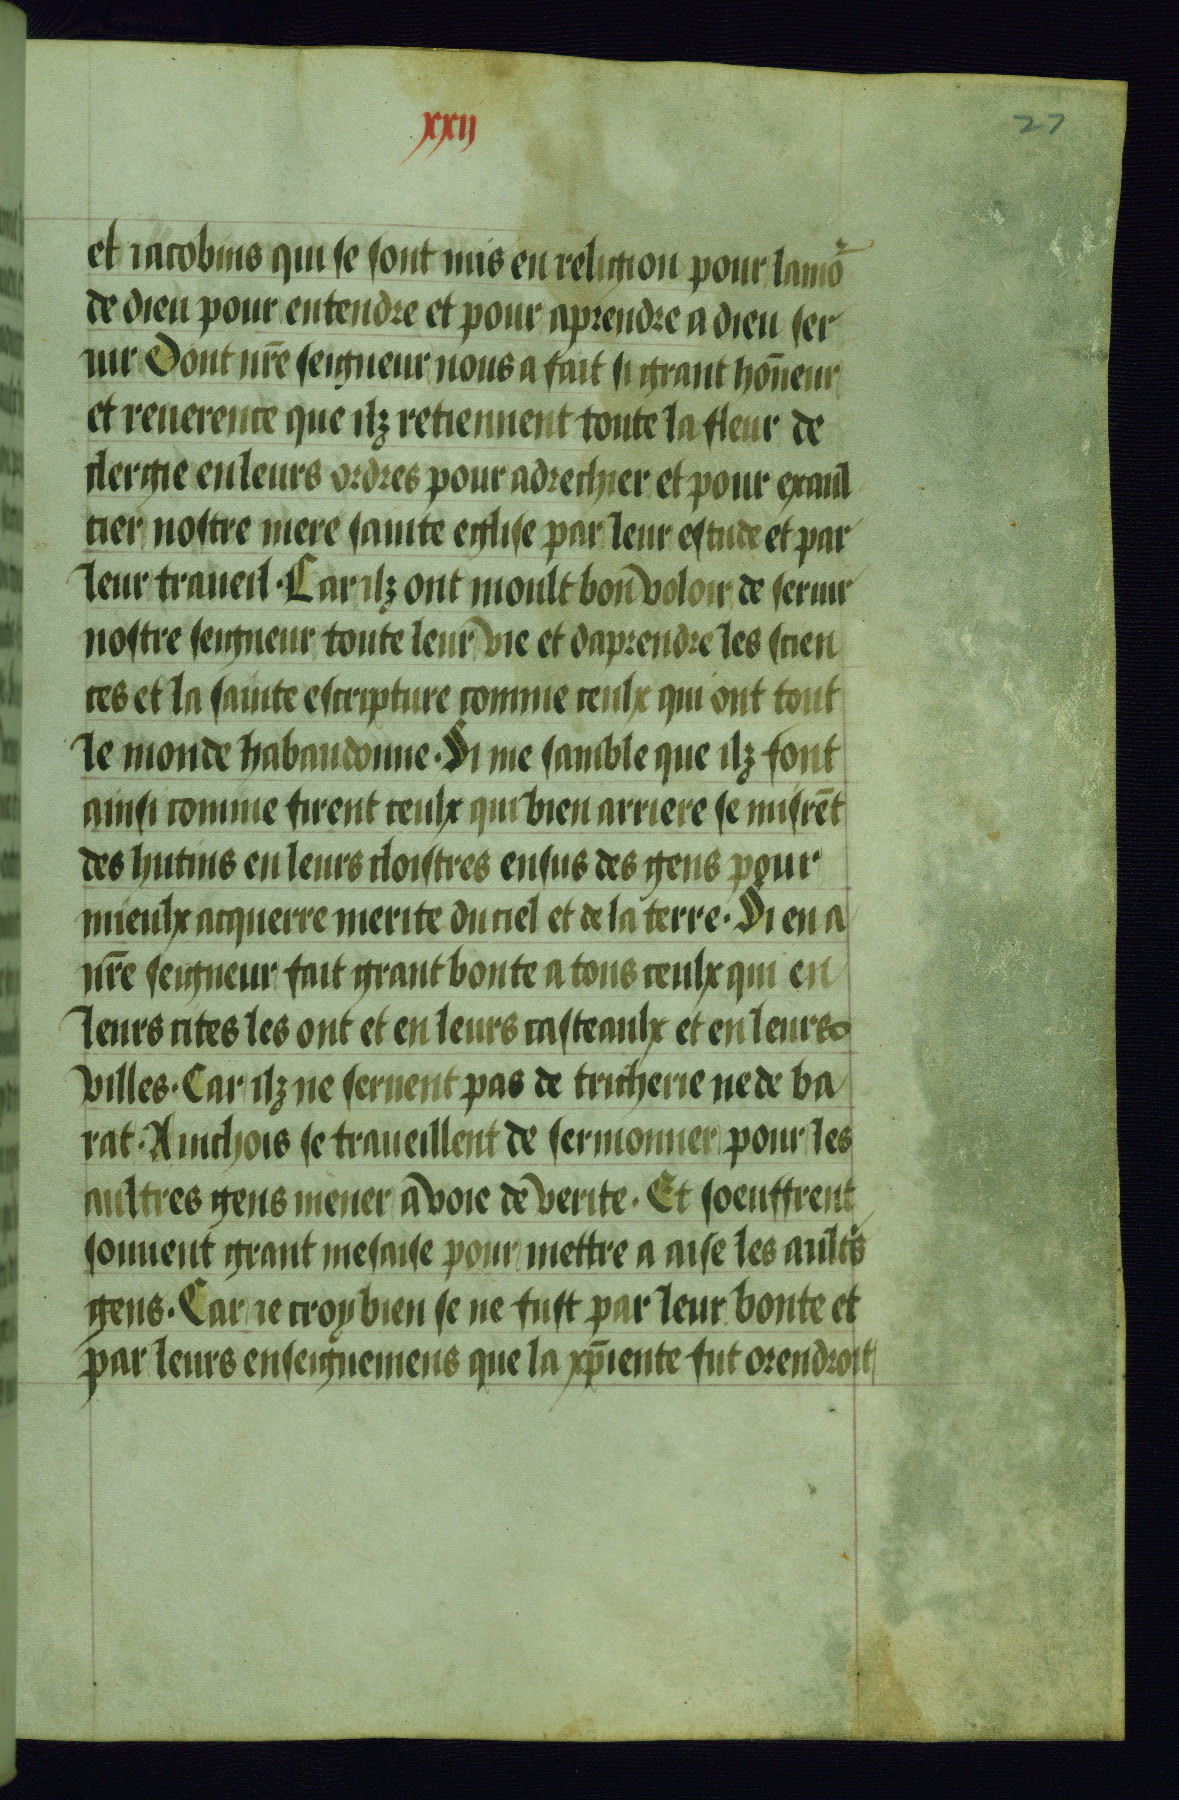 xxij
27
et iacobins qui se sont mis en religion pour lamoʳ
de dieu pour entendre et pour aprendre a dieu ser
uir Dont nr̄e seigneur nous a fait si grant hon̄eur
et reuerence que ilz retiennent toute la fleur de
clergie en leurs ordres pour adrechier et pour exaul
tier nostre mere sainte eglise par leur estude et par
leur traueil· Car ilz ont moult bon voloir de seruir
nostre seigneur toute leur vie et daprendre les scien
ces et la sainte escripture comme ceulx qui ont tout
le monde habandonne· Si me samble que ilz font
ainsi comme firent ceulx qui bien arriere se misrēt
des hutins en leurs cloistres ensus des gens pour
mieulx acquerre merite du ciel et de la terre· Si en a
nr̄e seigneur fait grant bonte a tous ceulx qui en
leurs cites les ont et en leurs casteaulx et en leurs
villes· Car ilz ne seruent pas de tricherie ne de ba
rat· Ainchois se traueillent de sermonner pour les
aultres gens mener a voie de verite· Et soeuffrent
souuent grant mesaise pour mettre a aise les aultˢ
gens· Car ie croy bien se ne fust par leur bonte et
par leurs enseignemens que la xp̄iente fut orendroit